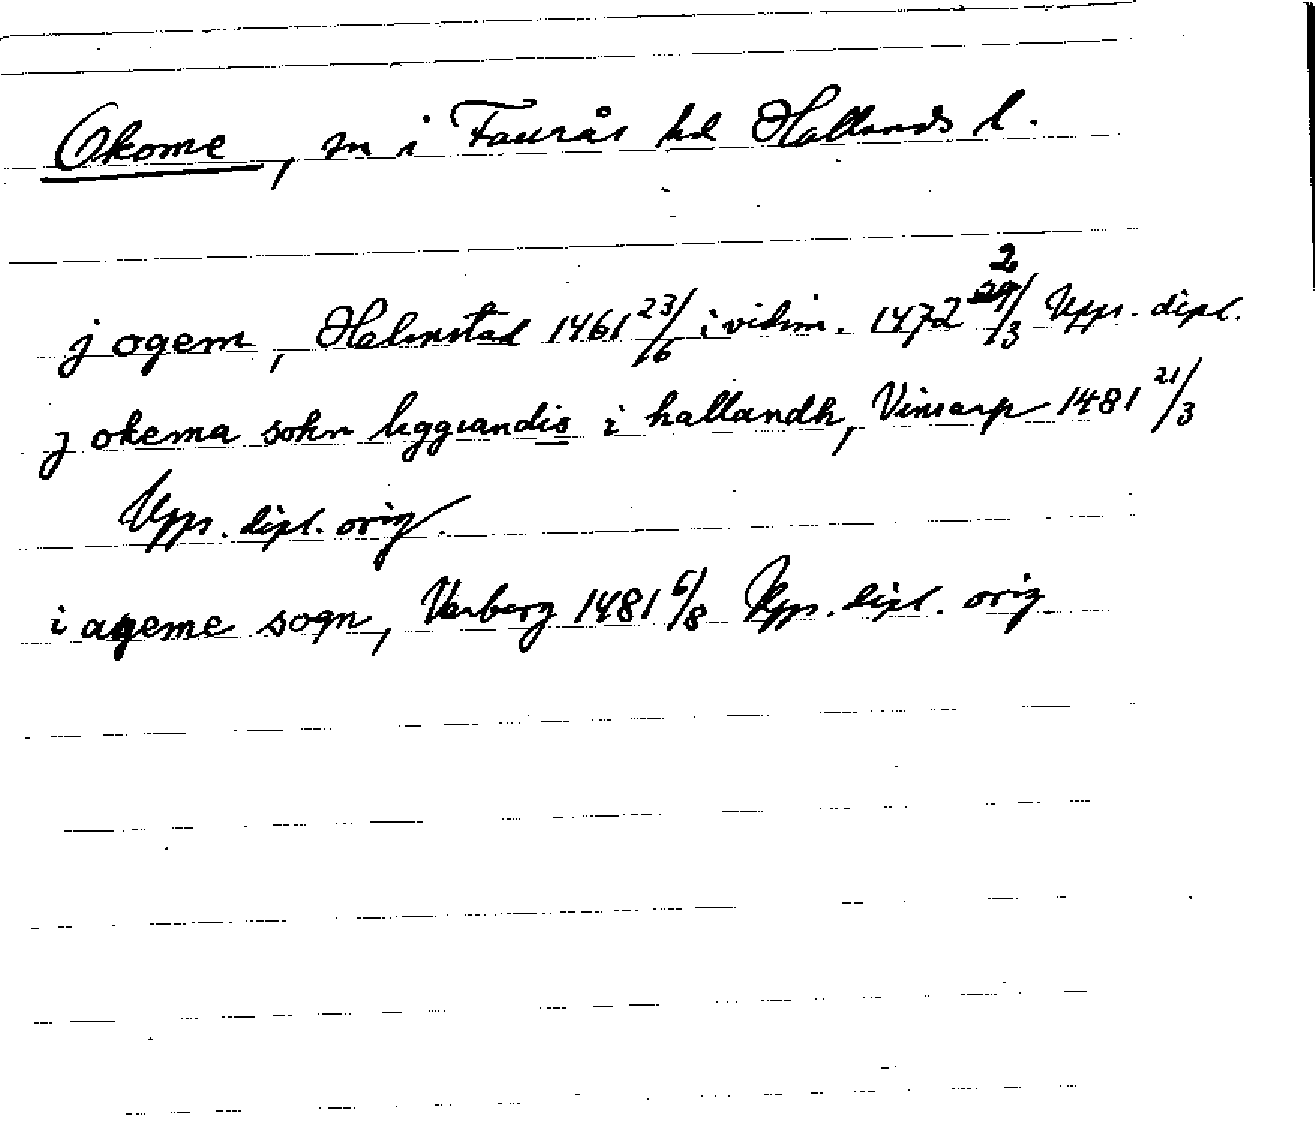 Okome, sn i Faurås hd Hallands l.
j ogem, Halmstad 1461 23/6 i vidim. 1472 2/3 Upps. dipl.
j okema sokn liggiandis i hallandh, Vinsarp 1481 21/3
Upps. dipl. orig.
i ageme sogn, Varberg 1481 6/8 Upps. dipl. orig.